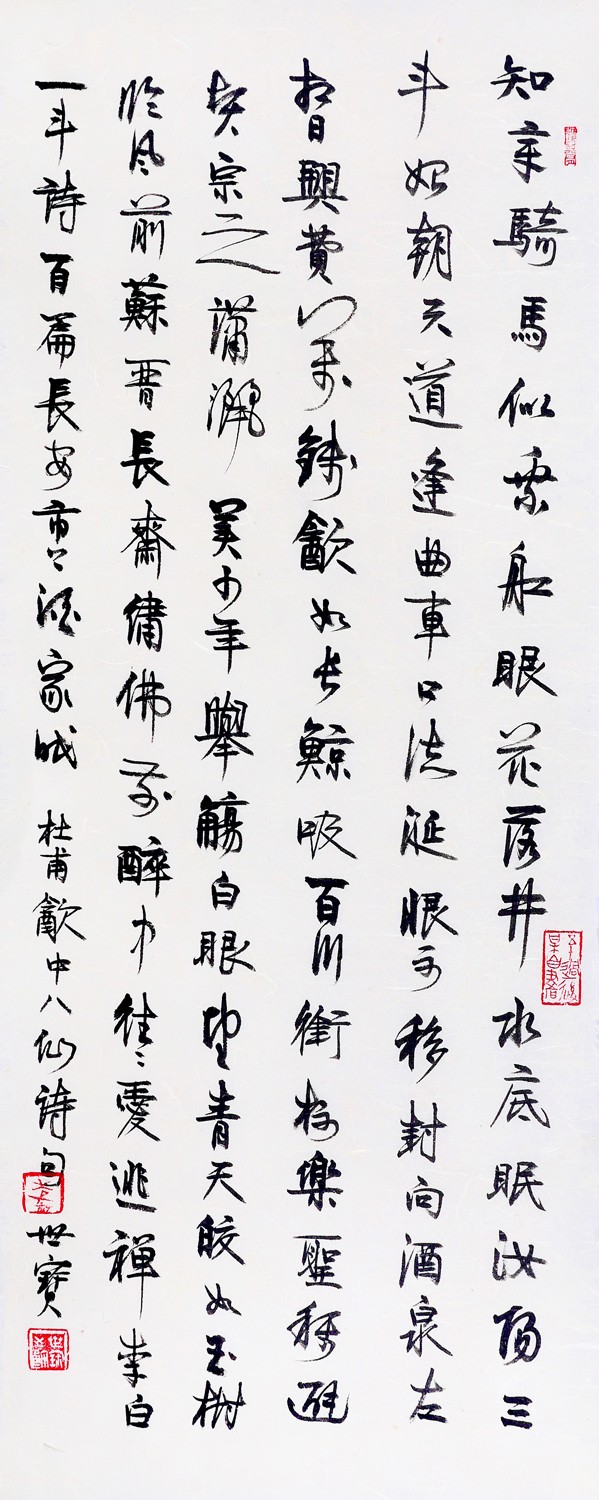 知章騎馬似乘船眼花落井水底眠汝陽三
斗始朝天道逢曲車口流涎恨不移封向酒泉左
相日興費萬錢飲如長鯨吸百川銜杯樂聖稱避
賢宗之瀟灑美少年舉觴白眼望青天皎如玉樹
臨風前蘇晉長齋繡佛前醉中往往愛逃禪李白
一斗詩百篇長安市上酒家眠 杜甫飲中八仙詩句 世寶